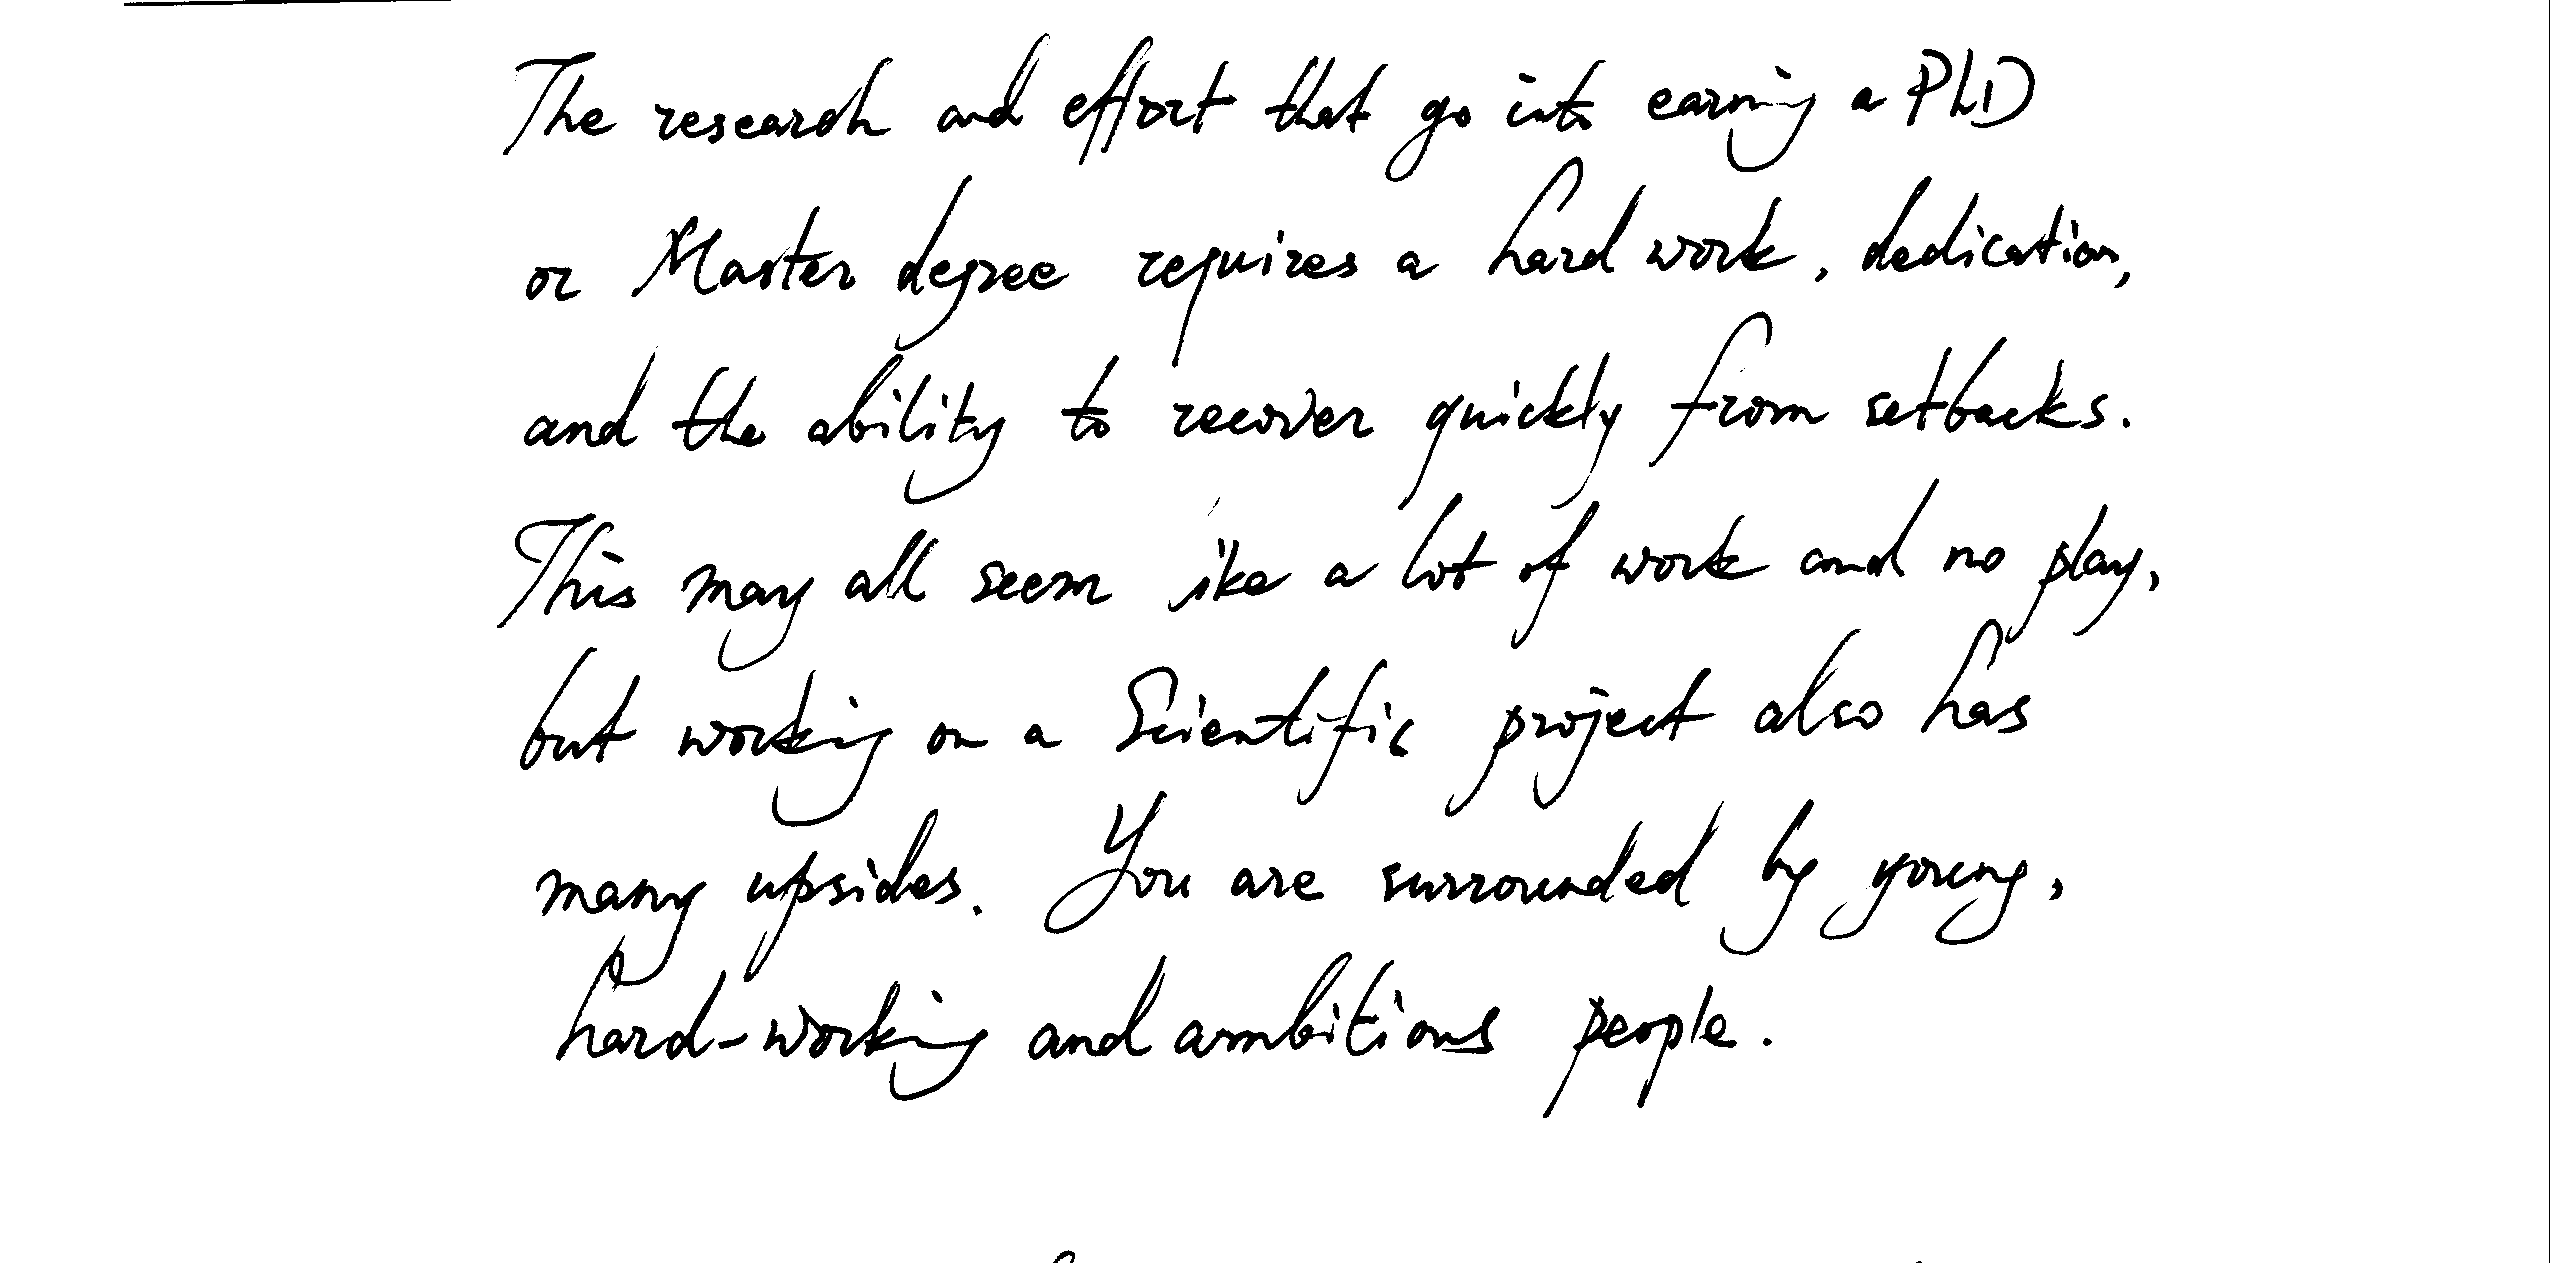 The research and effort that go into earning a PhD
or Master degree requires a hard work, dedication,
and the ability to recover quickly from setbacks.
This may all seem like a lot of work and no play,
but working on a Scientific project also has
many upsides. You are surrounded by young,
hard-working and ambitious people.